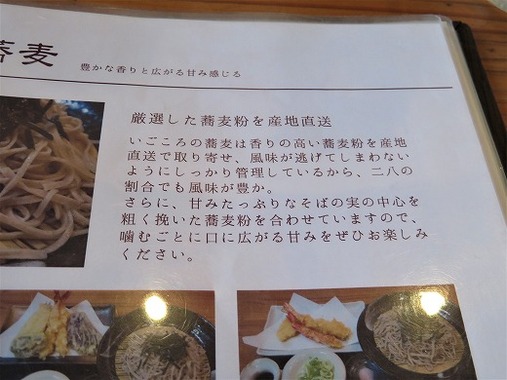 蕎麦
豊かな香りと広がる甘み感じる
厳選した蕎麦粉を産地直送
いごころの蕎麦は香りの高い蕎麦粉を産地
直送で取り寄せ、風味が逃げてしまわない
ようにしっかり管理しているから、二八の
割合でも風味が豊か。
さらに、甘みたっぷりなそばの実の中心を
粗く挽いた蕎麦粉を合わせていますので、
噛むごとに口に広がる甘みをぜひお楽しみ
ください。